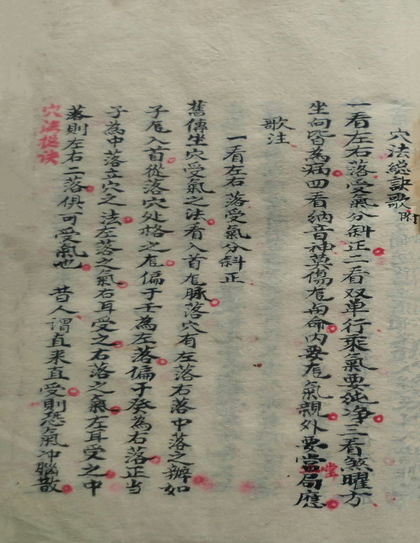 穴法總訣歌附
一看左右落受氣分斜正二看双單行乘氣要純净三看煞曜方
坐向皆為病四看納音神莫傷危內命內要危氣親外要當局應
堂
歌注
一看左右落受氣分斜正
舊傳坐穴受氣之法看入首危脉落穴有左落右落中落之辦如
子危入首從落穴处格之危偏于壬為左落偏于癸為右落正当
子為中落立穴之法左落之氣右耳受之右落之氣左耳受之中
落則左右二落俱可受氣也 昔人謂直来直受則恐氣冲腦散
穴法摠诀